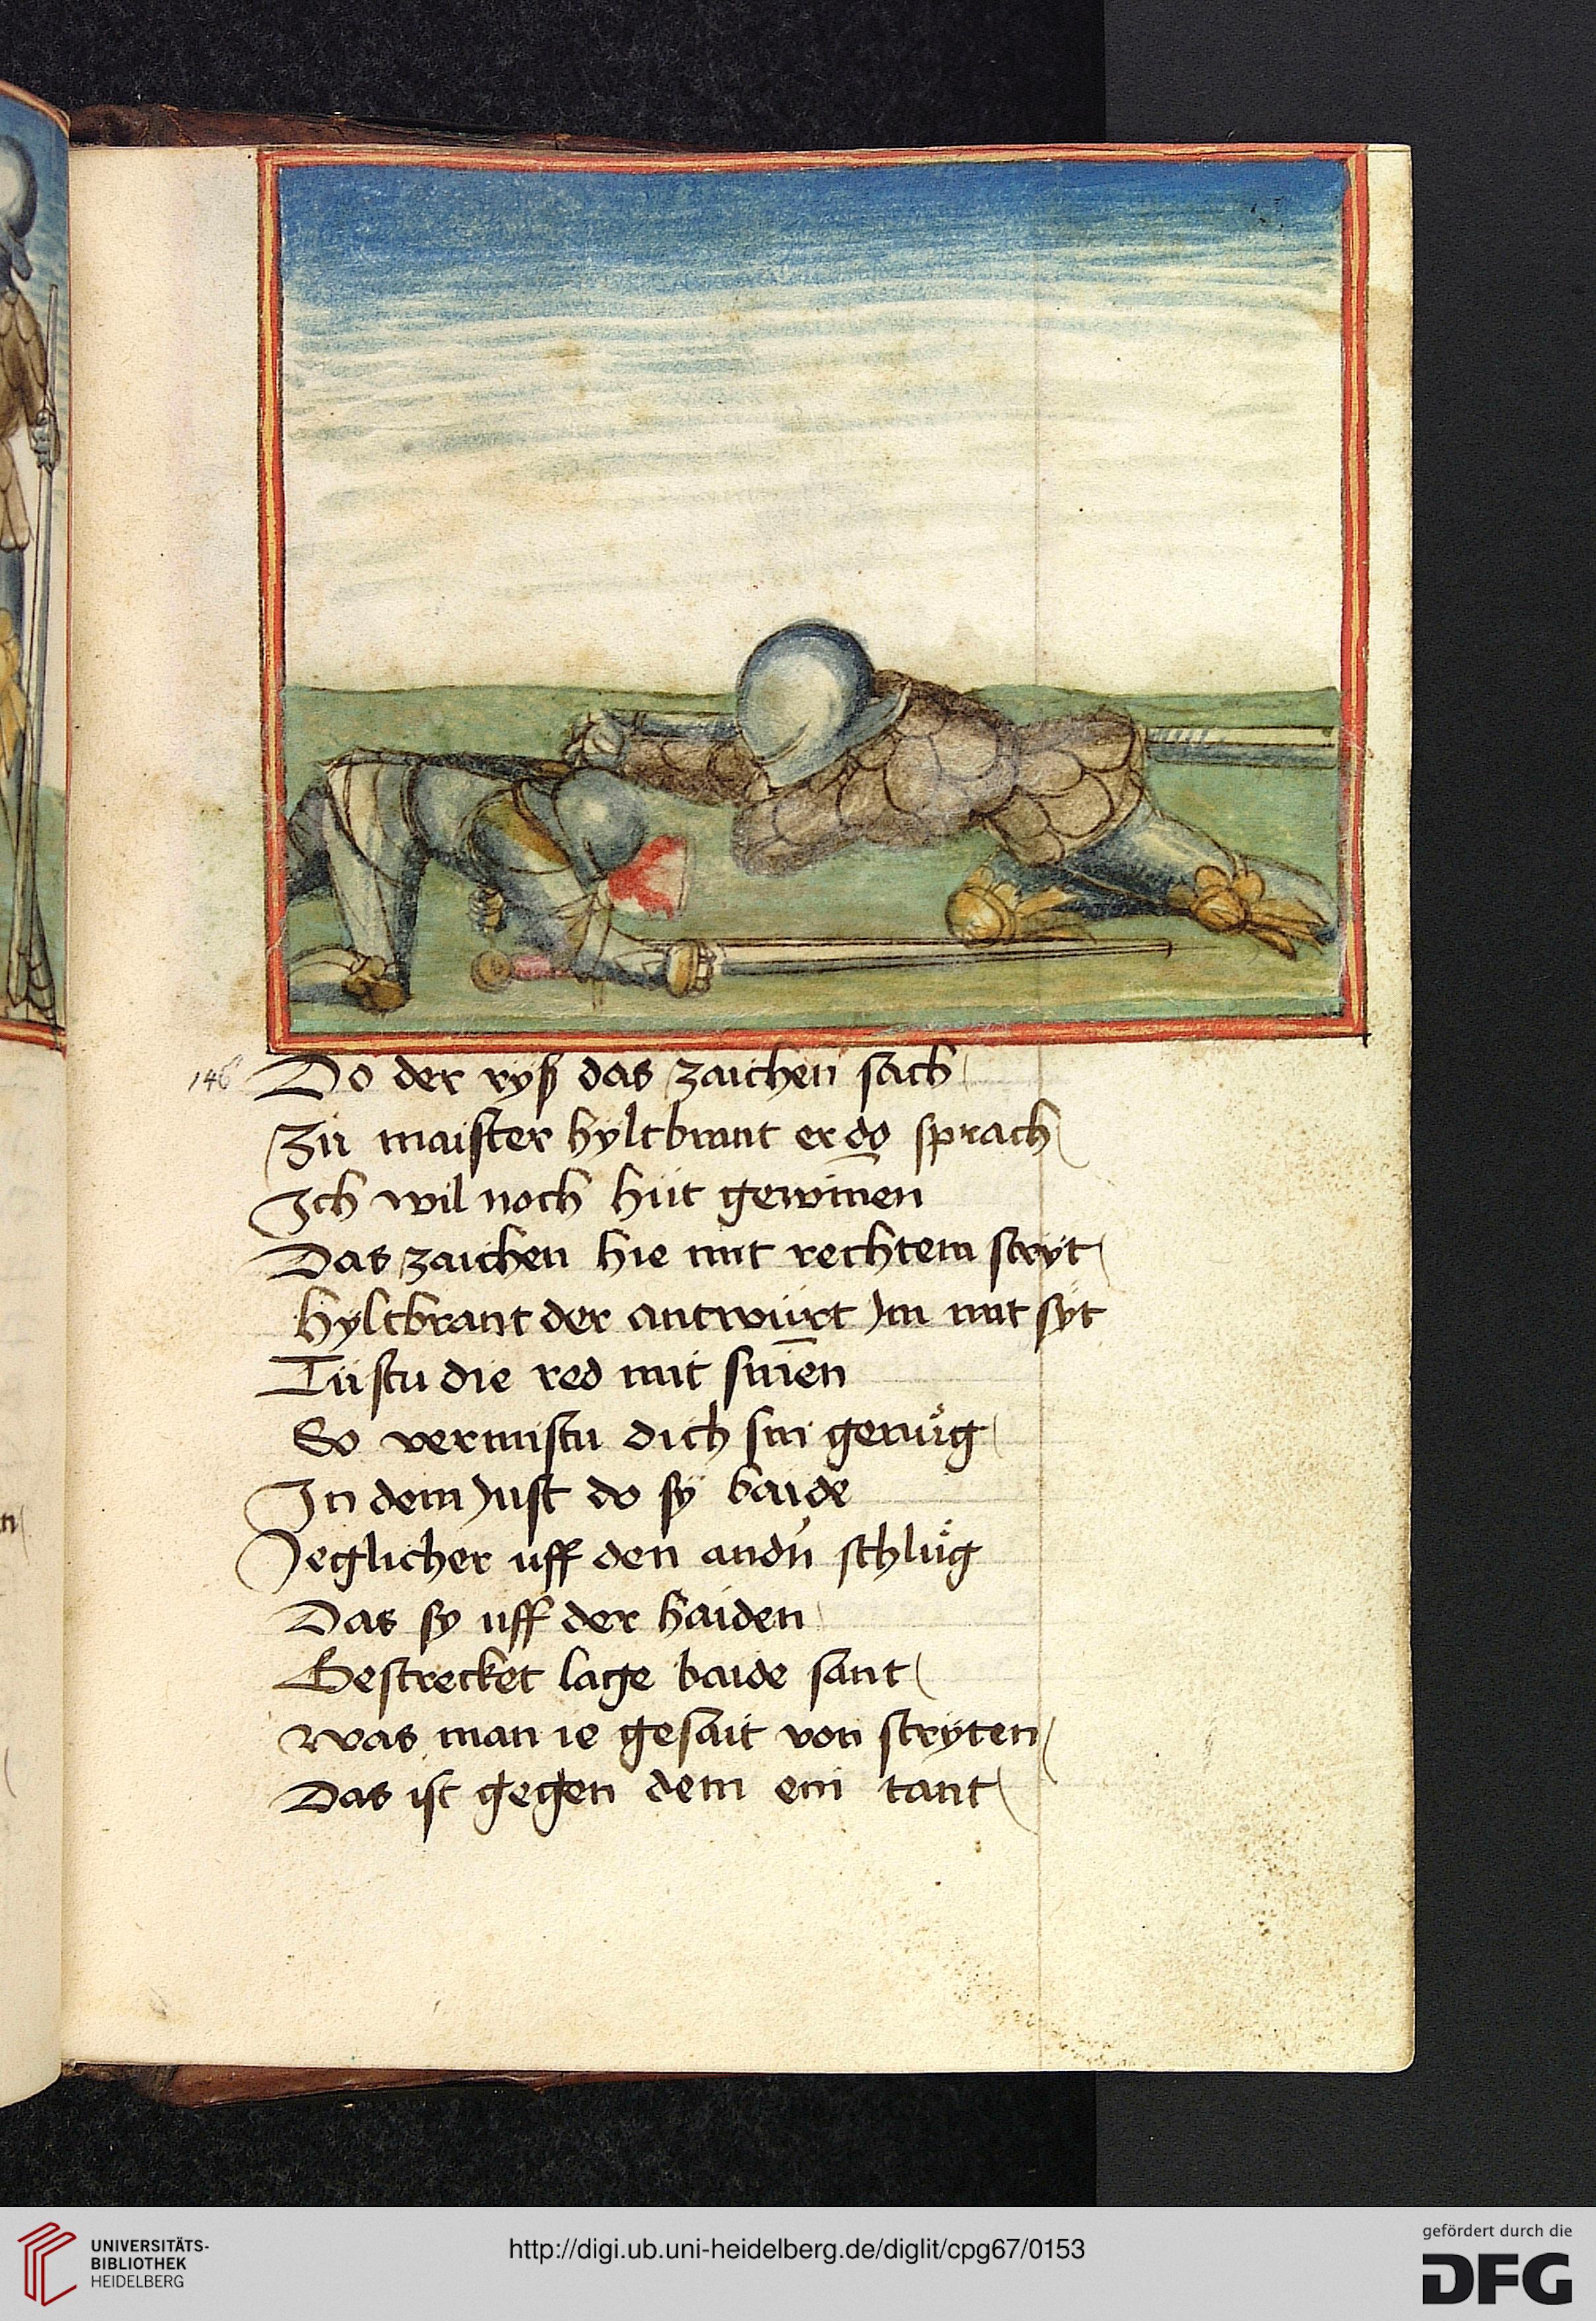 146
Do der ryß das zaichen sach
Zů maister hyltbrant er do sprach
Ich wil noch hüt gewiñen
Das zaichen hie mit rechtem stryt
Hyltbrant der antwürt Im mit syt
Tůstu die red mit siñen
So vermistu dich sin genůg
In dem Iust do sy baide
Ieglicher uff den andn̄ schlůg
Das sy uff der haiden
Gestrecket lage baide sant
Was man ie gesait von stryten
Das ist gegen dem ein tant
UNIVERSITÄTS-
BIBLIOTHEK
HEIDELBERG
http://digi.ub.uni-heidelberg.de/diglit/cpg67/0153
gefördert durch die
DFG